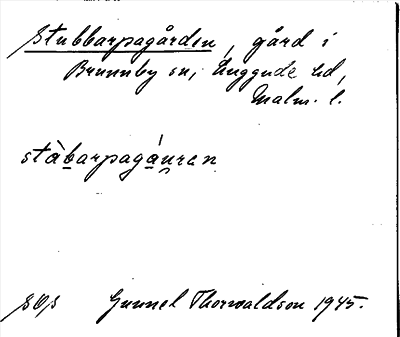 Stubbarpagården, gård i
Brunnby sn, Luggude hd,
Malm. l.
stàbarpagáu̯ren
SOS Gunnel Thorvaldson 1945.